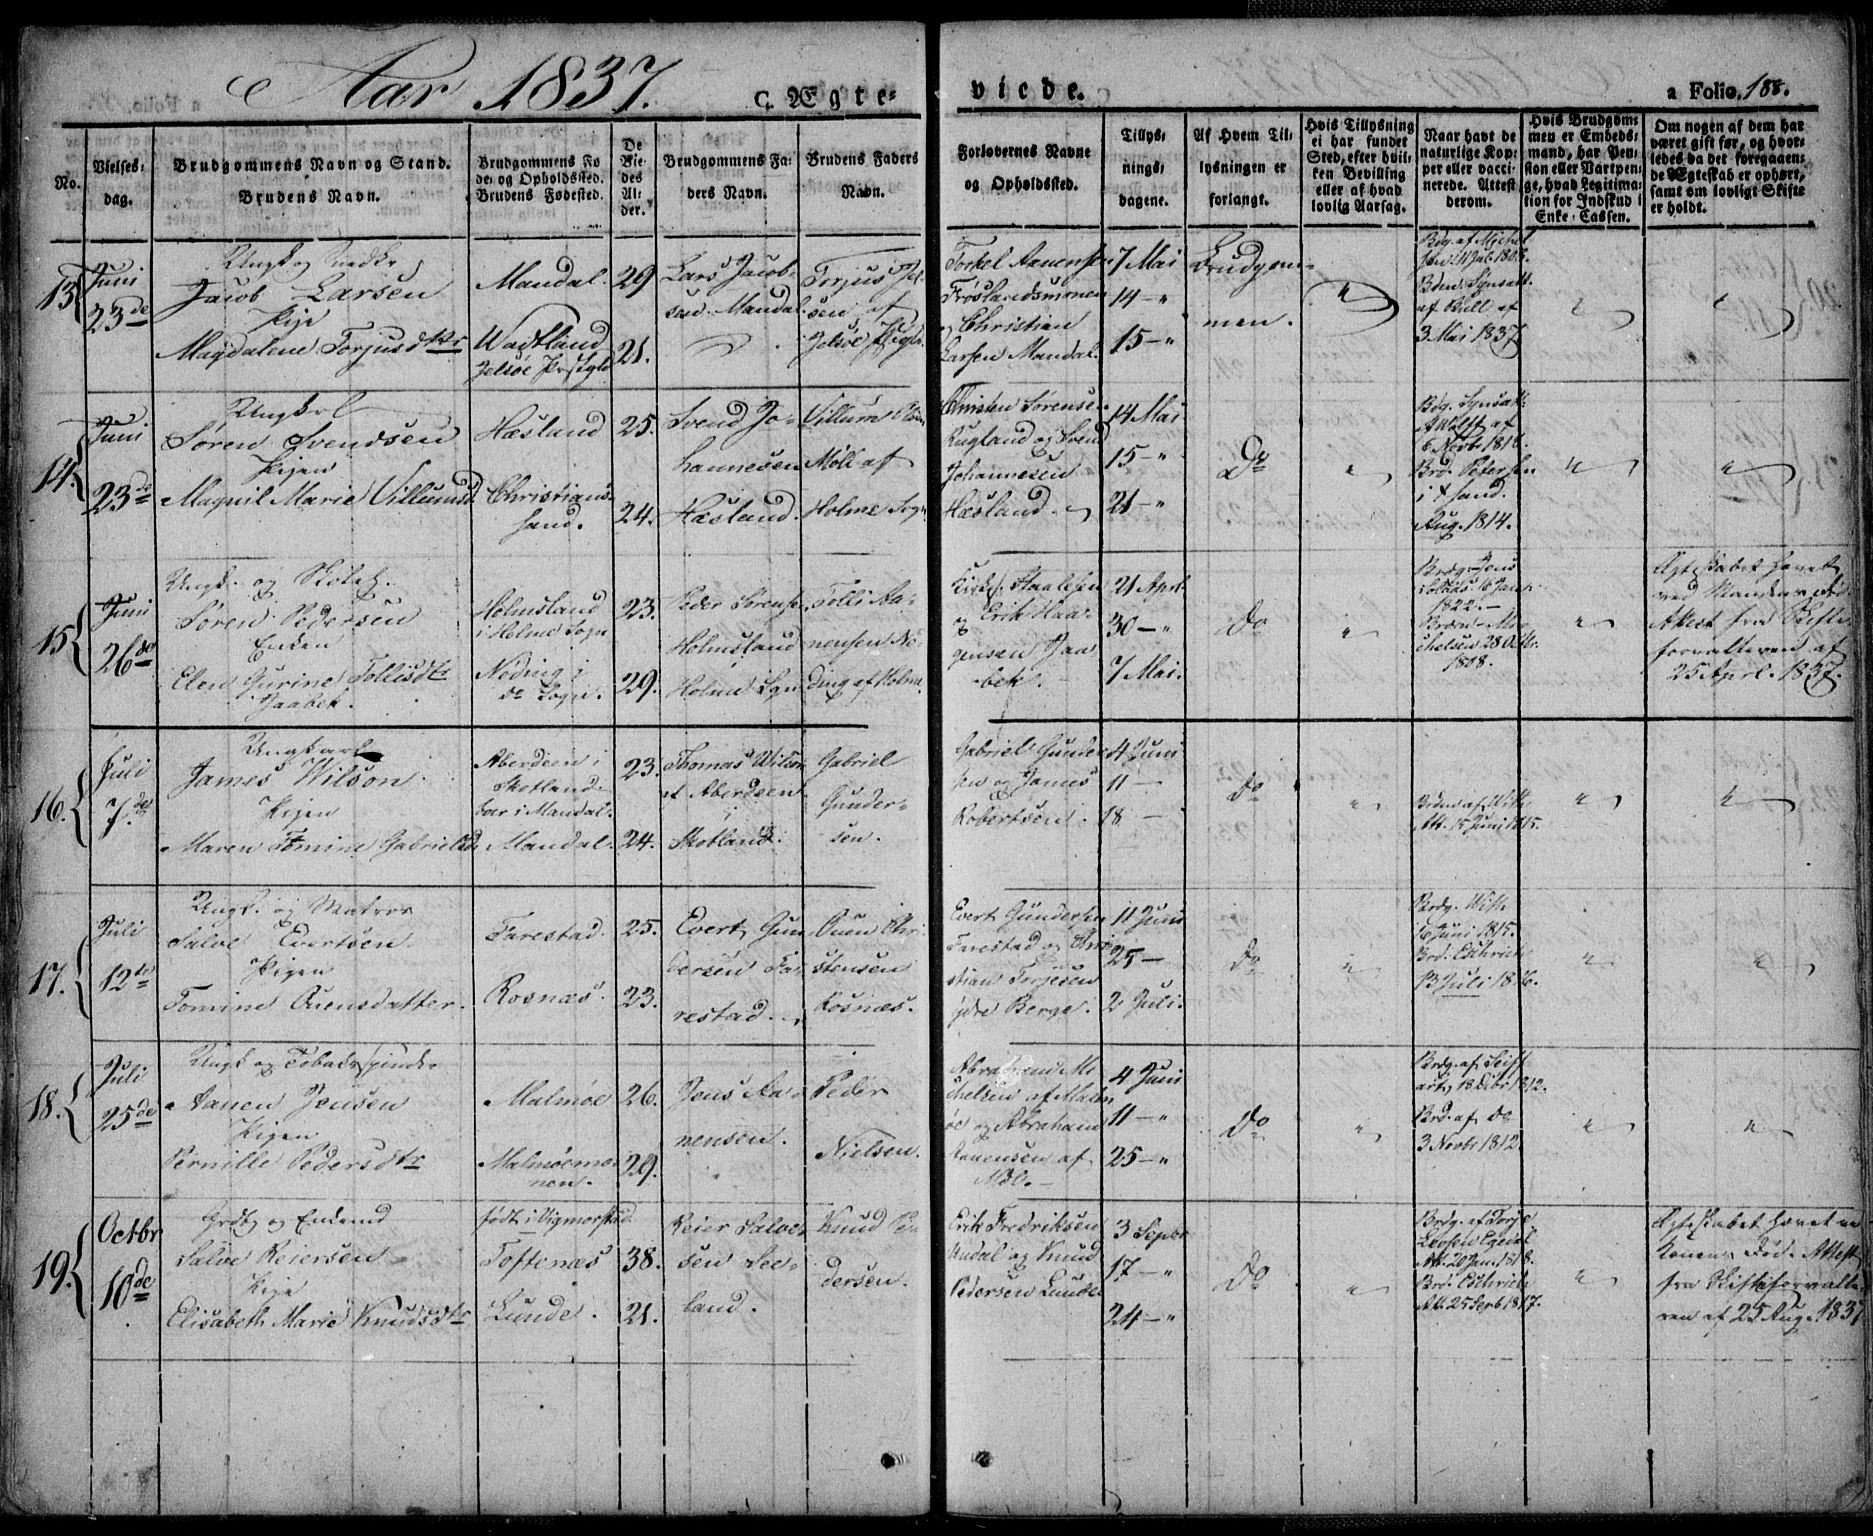 Aar 1837.
C. Ægte-
viede.
a Folio. 188.
No.
Vielses-
dag.
Brudgommens Navn og Stand.
Brudens Navn.
Brudgommens Fø
de- og Opholdssted.
Brudens Fødested.
De
Vie-
des
Al-
der.
Brudgommens Fa-
ders Navn.
Brudens Faders
Navn.
Forlovernes Navne
og Opholdssted.
Tillys-
nings-
dagene.
Af Hvem Til-
lysningen er
forlangt.
Hvis Tillysning
ei har fundet
Sted, efter hvil-
ken Bevilling
eller af hvad
lovlig Aarsag.
Naar havt de
naturlige Kop-
per eller vacci-
nerede. Attest
derom.
Hvis Brudgom-
men er Embeds-
mand, har Pen-
sion eller Vartpen-
ge, hvad Legitima-
tion for Indskud i
Enke-Cassen.
Om nogen af dem har
været gift før, og hvor-
ledes da det foregaaen-
de Ægteskab er ophørt,
samt om lovligt Skifte
er holdt.
13
Juni
23de
Ungk og Snedkr
Jacob Larsen
Pige
Magdalene Torjusdtr
Mandal.
Jelsøe Prstgld
29
21.
Lars Jacob-
sen Mandal
Torjus
sen af
Jelsøe
Torkel Aanensen
Frøslandsmonen
og Christian
Larsen Mandal.
7 Mai
14 - "
15 - "
Brudgom-
men.
"
Bdg. af Michel
Bden. Synsatt.
af Bull af
3 Mai 1837
"
"
14.
Juni
23de
Ungkrl
Søren Svendsen
Pigen
Magnil Marie Villumsd.
Hæsland
Christian-
sand.
25.
24.
Svend Jo-
hannesen
Hæsland.
Villum
Møll af
Holme Sogn
Christen Sørensen
Rugland og Svend
Johannesen
Hæsland.
14 Mai
15 - "
21 - "
Do
"
Bdg. Synsatt.
Wolff af
6 Novb. 1818.
Brd. Petersen
i X sand.
Aug. 1814.
"
"
15
Juni
26de
Ungk. og
Søren Pedersen
Enken
Elen Gurine Tollisdtr
Jaabek.
Holmsland
i Holme Sogn
Nøding i
do Sogn.
23.
29.
Peder Sørensen
Holmsland
Holme Sgn
Tolli Aa-
nensen Nø-
ding af Holme.
Staalesen
og Erik Haa-
gensen Jaa-
bek.
21 Aprl
30 - "
7 Mai.
Do
"
Brdg. Jens
16 Jan.
1822. -
Brden. Mi-
chelsen 28 Octbr.
1808.
"
Ægteskabet hævet
ved Mandens Død.
Attest fra Skifte-
forvalteren af
25 Aprl. 1837.
16.
Juli
7de
Ungkarl
James Wilson
Pigen
Maren Tomine Gabrielsd.
Aberdeen i
Skotland
boer i Mandal.
Mandal.
23.
24.
Thomas Wilson
af Aberdeen
i
Skotland.
Gabriel
Gunder-
sen.
Gabriel Gunder-
sen og James
Robertsen.
4 Juni
11 -
18 -
Do
"
Brden af With
Att. 15 Juni 1815.
"
"
17.
Juli
12te
Ungk. og Matros
Salve Evertsen
Pigen
Tomine Ouensdatter.
Farestad.
Rosnæs.
25.
23.
Evert Gun-
dersen Fa-
restad.
Ouen Chri-
stensen
Rosnæs.
Evert Gundersen
Farestad og Chri-
stian Torjesen
ydre Berge.
11 Juni
25 -
2 Juli.
Do
"
Brdg. With
6 Juni 1815.
Brd. Eschrich
13 Juli 1816.
"
"
18.
Juli
25de
Ungk og Tobaksspinder
Aanen Jensen
Pigen
Pernille Pedersdtr
Malmøe
Malmøemo-
nen.
26.
29.
Jens Aa-
nensen.
Peder
Nielsen.
Abraham Mi-
chelsen af Malm
øe og Abraham
Aanensen af
4 Juni
11 - "
25 - "
Do
"
Brdg. af Seiff-
art, 18 Debr 1812.
Brd. af Do
3 Novbr 1812
"
"
19.
Octbr
10de
Grdbr og Enkemd
Salve Reiersen
Pige
Elisabeth Marie Knudsdtr
født i Vigmorstad
Toftenæs
Lunde.
38.
21.
Reier Salve-
sen See-
land.
Knud Pe-
dersen.
Erik Fredriksen
Undal og Knud
Pedersen Lunde
3 Sepbr
17 - "
24 - "
Do
"
Brdg. af Torje
Levsen Egedal
Att. 20 Jan. 1818.
Brd. Eschrich
Att. 25 Septb 1817.
"
Ægteskabet hævet ved
Konens Død. Attest
fra Skifteforvalte-
ren af 25 Aug. 1837